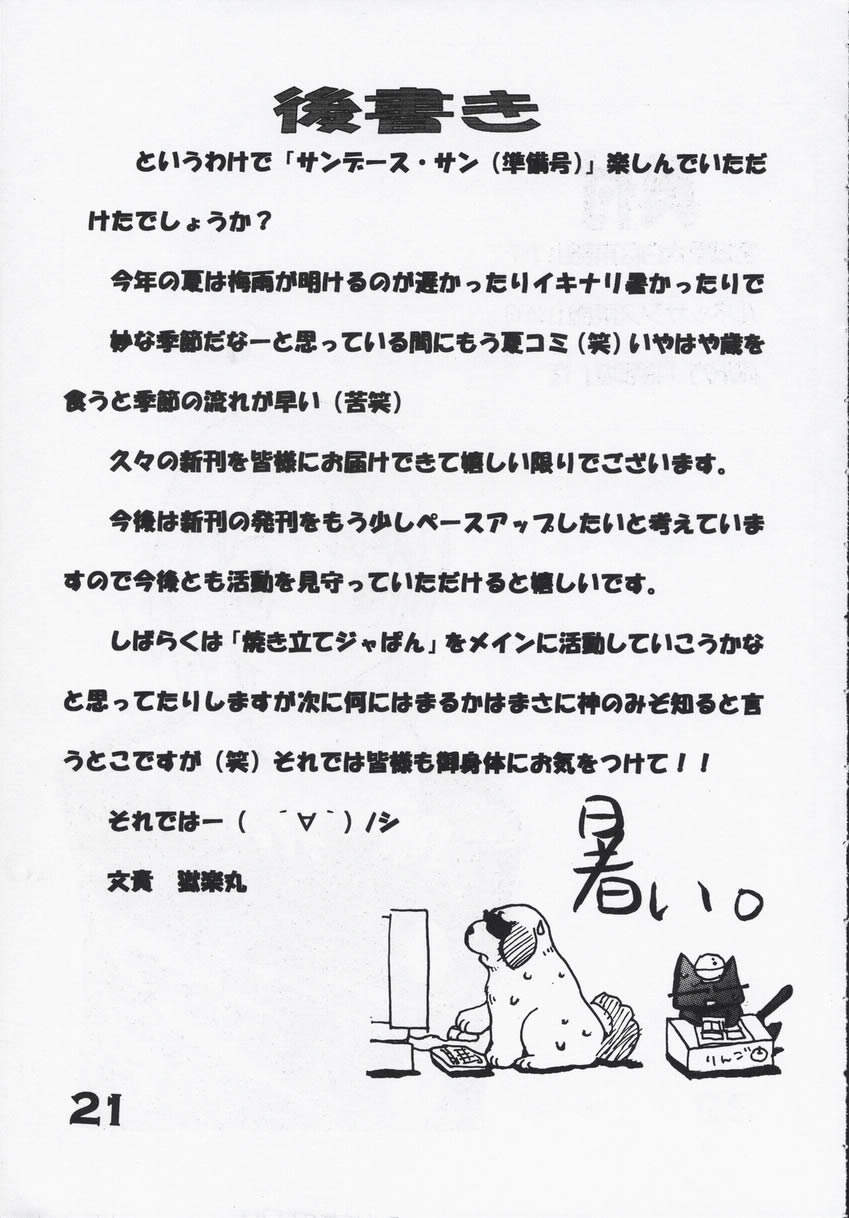 後書き
というわけで「サンデース・サン（準備号）」楽しんでいただ
けたでしょうか？
今年の夏は梅雨が明けるのが遅かったりイキナリ暑かったりで
妙な季節だなーと思っている間にもう夏コミ（笑）いやはや歳を
食うと季節の流れが早い（苦笑）
久々の新刊を皆様にお届けできて嬉しい限りでございます。
今後は新刊の発刊をもう少しペースアップしたいと考えていま
すので今後とも活動を見守っていただけると嬉しいです。
しばらくは「焼き立てジャぱん」をメインに活動していこうかな
と思ってたりしますが次に何にはまるかはまさに神のみぞ知ると言
うとこですが（笑）それでは皆様も御身体にお気をつけて！！
それではー（　´∀｀）ﾉｼ
文責　獄楽丸
暑い。
りんご
21